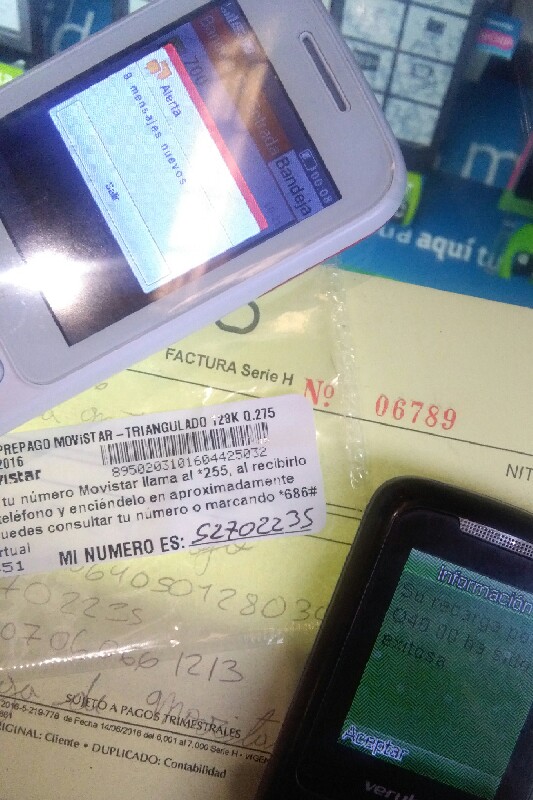 Alerta
9 mensajes nuevos
Salir
Bandeja
00:08
aquí tu
FACTURA Serie H
Nº 06789
NIT
PREPAGO MOVISTAR-TRIANGULADO 128K 0.275
2016
8950203101604425032
vistar
tu número Movistar llama al *255, al recibirlo
teléfono y enciéndelo en aproximadamente
uedes consultar tu número o marcando *686#
rtual
451
MI NUMERO ES: 52702235
702235
661213
SUJETO A PAGOS TRIMESTRALES
de Fecha 14/06/2016 del 6,001 al 7,000 Serie H
ORIGINAL: Cliente • DUPLICADO: Contabilidad
Información
Su recarga po
Q40.00 ha sido
exitosa
Aceptar
veryk